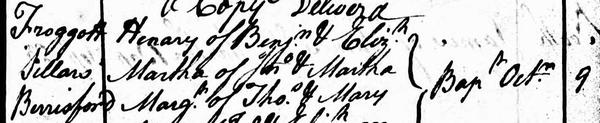 a Copy Deliverd
Froggott Henary of Benjn & Eliz.th
Sellars Martha of Jno & Martha
Berrisford Margt of Thos & Mary } Bapt Octr 9